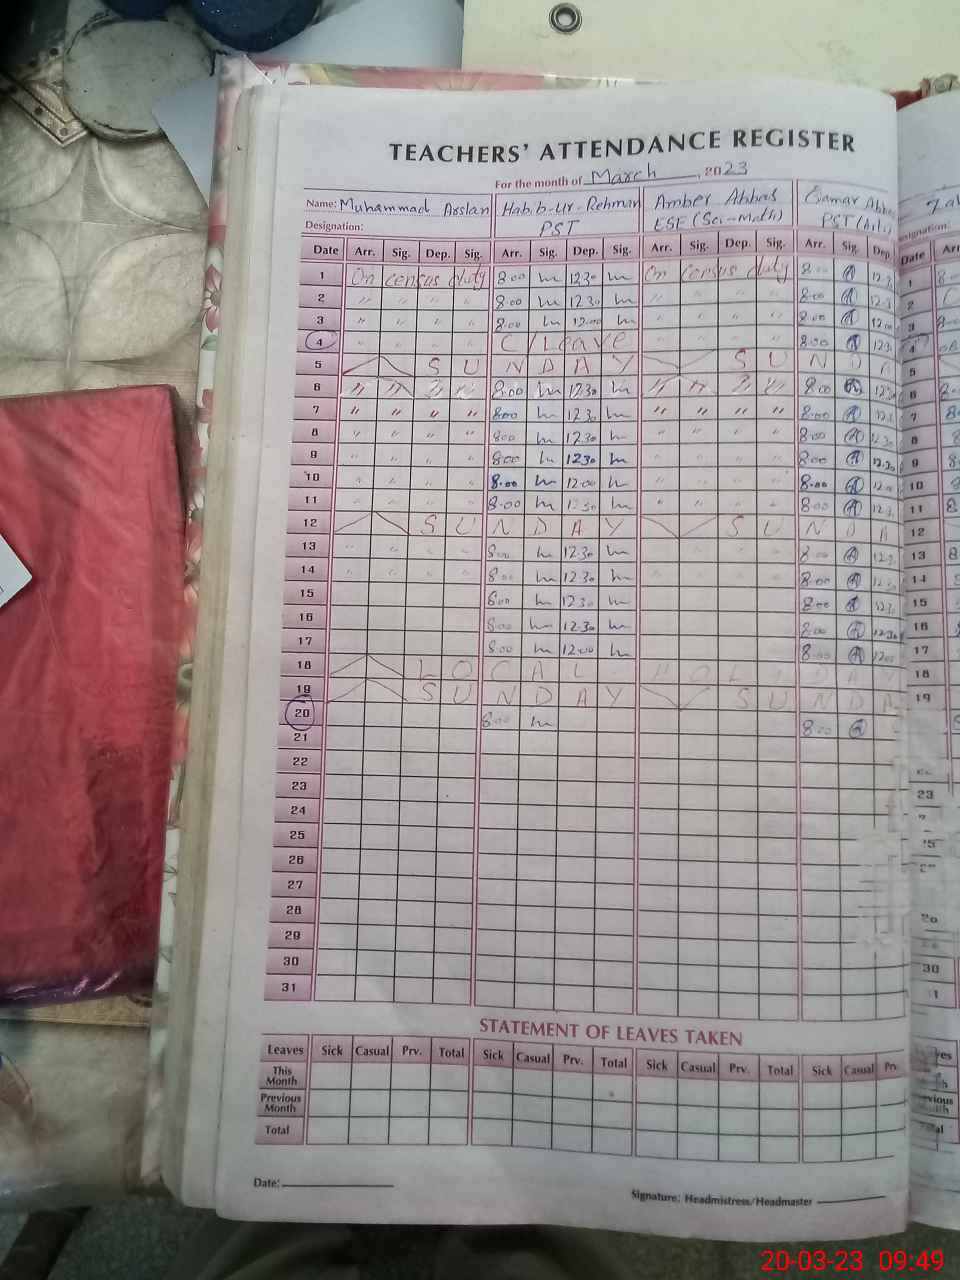 TEACHERS' ATTENDANCE REGISTER
For the month of March, 2023
Name: Muhammad Arslan Habib-ur-Rehman Amber Abbas
Designation: PST ESE (Sci-Math) PST (Arts)
Date Arr. Sig. Dep. Sig. Arr. Sig. Dep. Sig. Arr. Sig. Dep. Sig. Arr. Sig. Dep. Date
1 On census duty 8:00 12:30 On census duty 8:00 12:3 1
2 " " " " 8:00 12:30 " " " " 8:00 12:3 2
3 " " " " 8:00 12:00 " " " " 8:00 12:00 3
4 " " " " C/Leave " " " " 8:00 12:3 4
5 SUNDAY SUND 5
6 " " " " 8:00 12:30 " " " " 8:00 12:3 6
7 " " " " 8:00 12:30 " " " " 8:00 12:3 7
8 " " " " 8:00 12:30 " " " " 8:00 12:30 8
9 " " " " 8:00 12:30 " " " " 8:00 12:30 9
10 " " " " 8:00 12:00 " " " " 8:00 12:00 10
11 " " " " 8:00 12:30 " " " " 8:00 12:3 11
12 SUNDAY SUNDA 12
13 " " " " 8:00 12:30 " " " 8:00 12:3 13
14 " " " " 8:00 12:30 " " " " 8:00 12:30 14
15 8:00 12:30 8:00 12:30 15
16 8:00 12:30 8:00 12:30 16
17 8:00 12:00 8:00 12:00 17
18 LOCAL HOLIDAY 18
19 SUNDAY SUNDA 19
20 8:00 8:00
21
22
23 23
24
25
26
27
28
29
30 30
31
STATEMENT OF LEAVES TAKEN
Leaves Sick Casual Prv. Total Sick Casual Prv. Total Sick Casual Prv. Total Sick Casual Prv.
This Month
Previous Month
Total
Date:
Signature: Headmistress/Headmaster
20-03-23 09:49